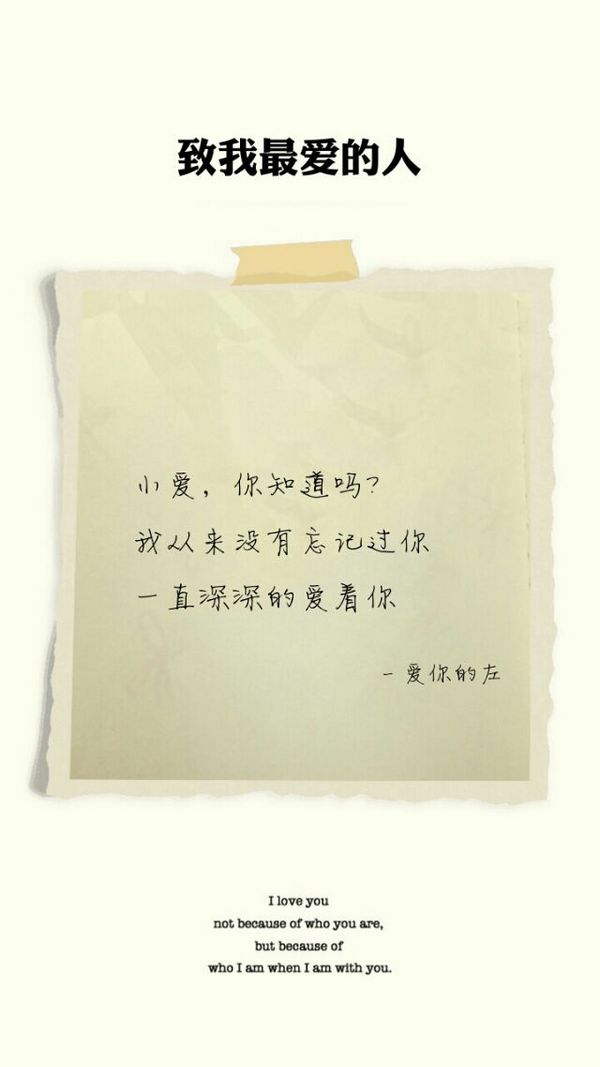 致我最爱的人
小爱，你知道吗？
我从来没有忘记过你
一直深深的爱着你
－爱你的左
I love you
not because of who you are,
but because of
who I am when I am with you.